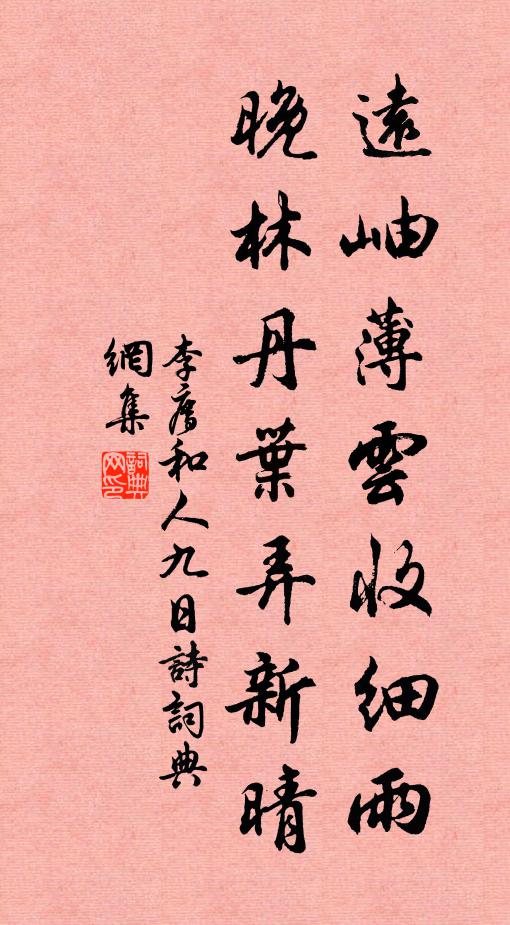 遠岫薄雲收細雨
晚林丹葉弄新晴
李廌和人九日詩詞典
網集
詞典网印